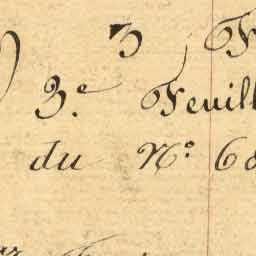 3 F
3.e Feuill
du N.o 68